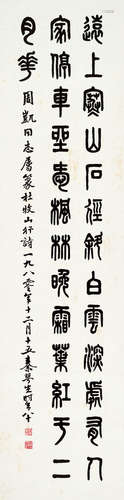 遠上寒山石徑斜白雲深處有人
家停車坐愛楓林晚霜葉紅于二
月華
周凱同志屬篆杜牧山行詩一九八〇年十二月十五秦咢生時年